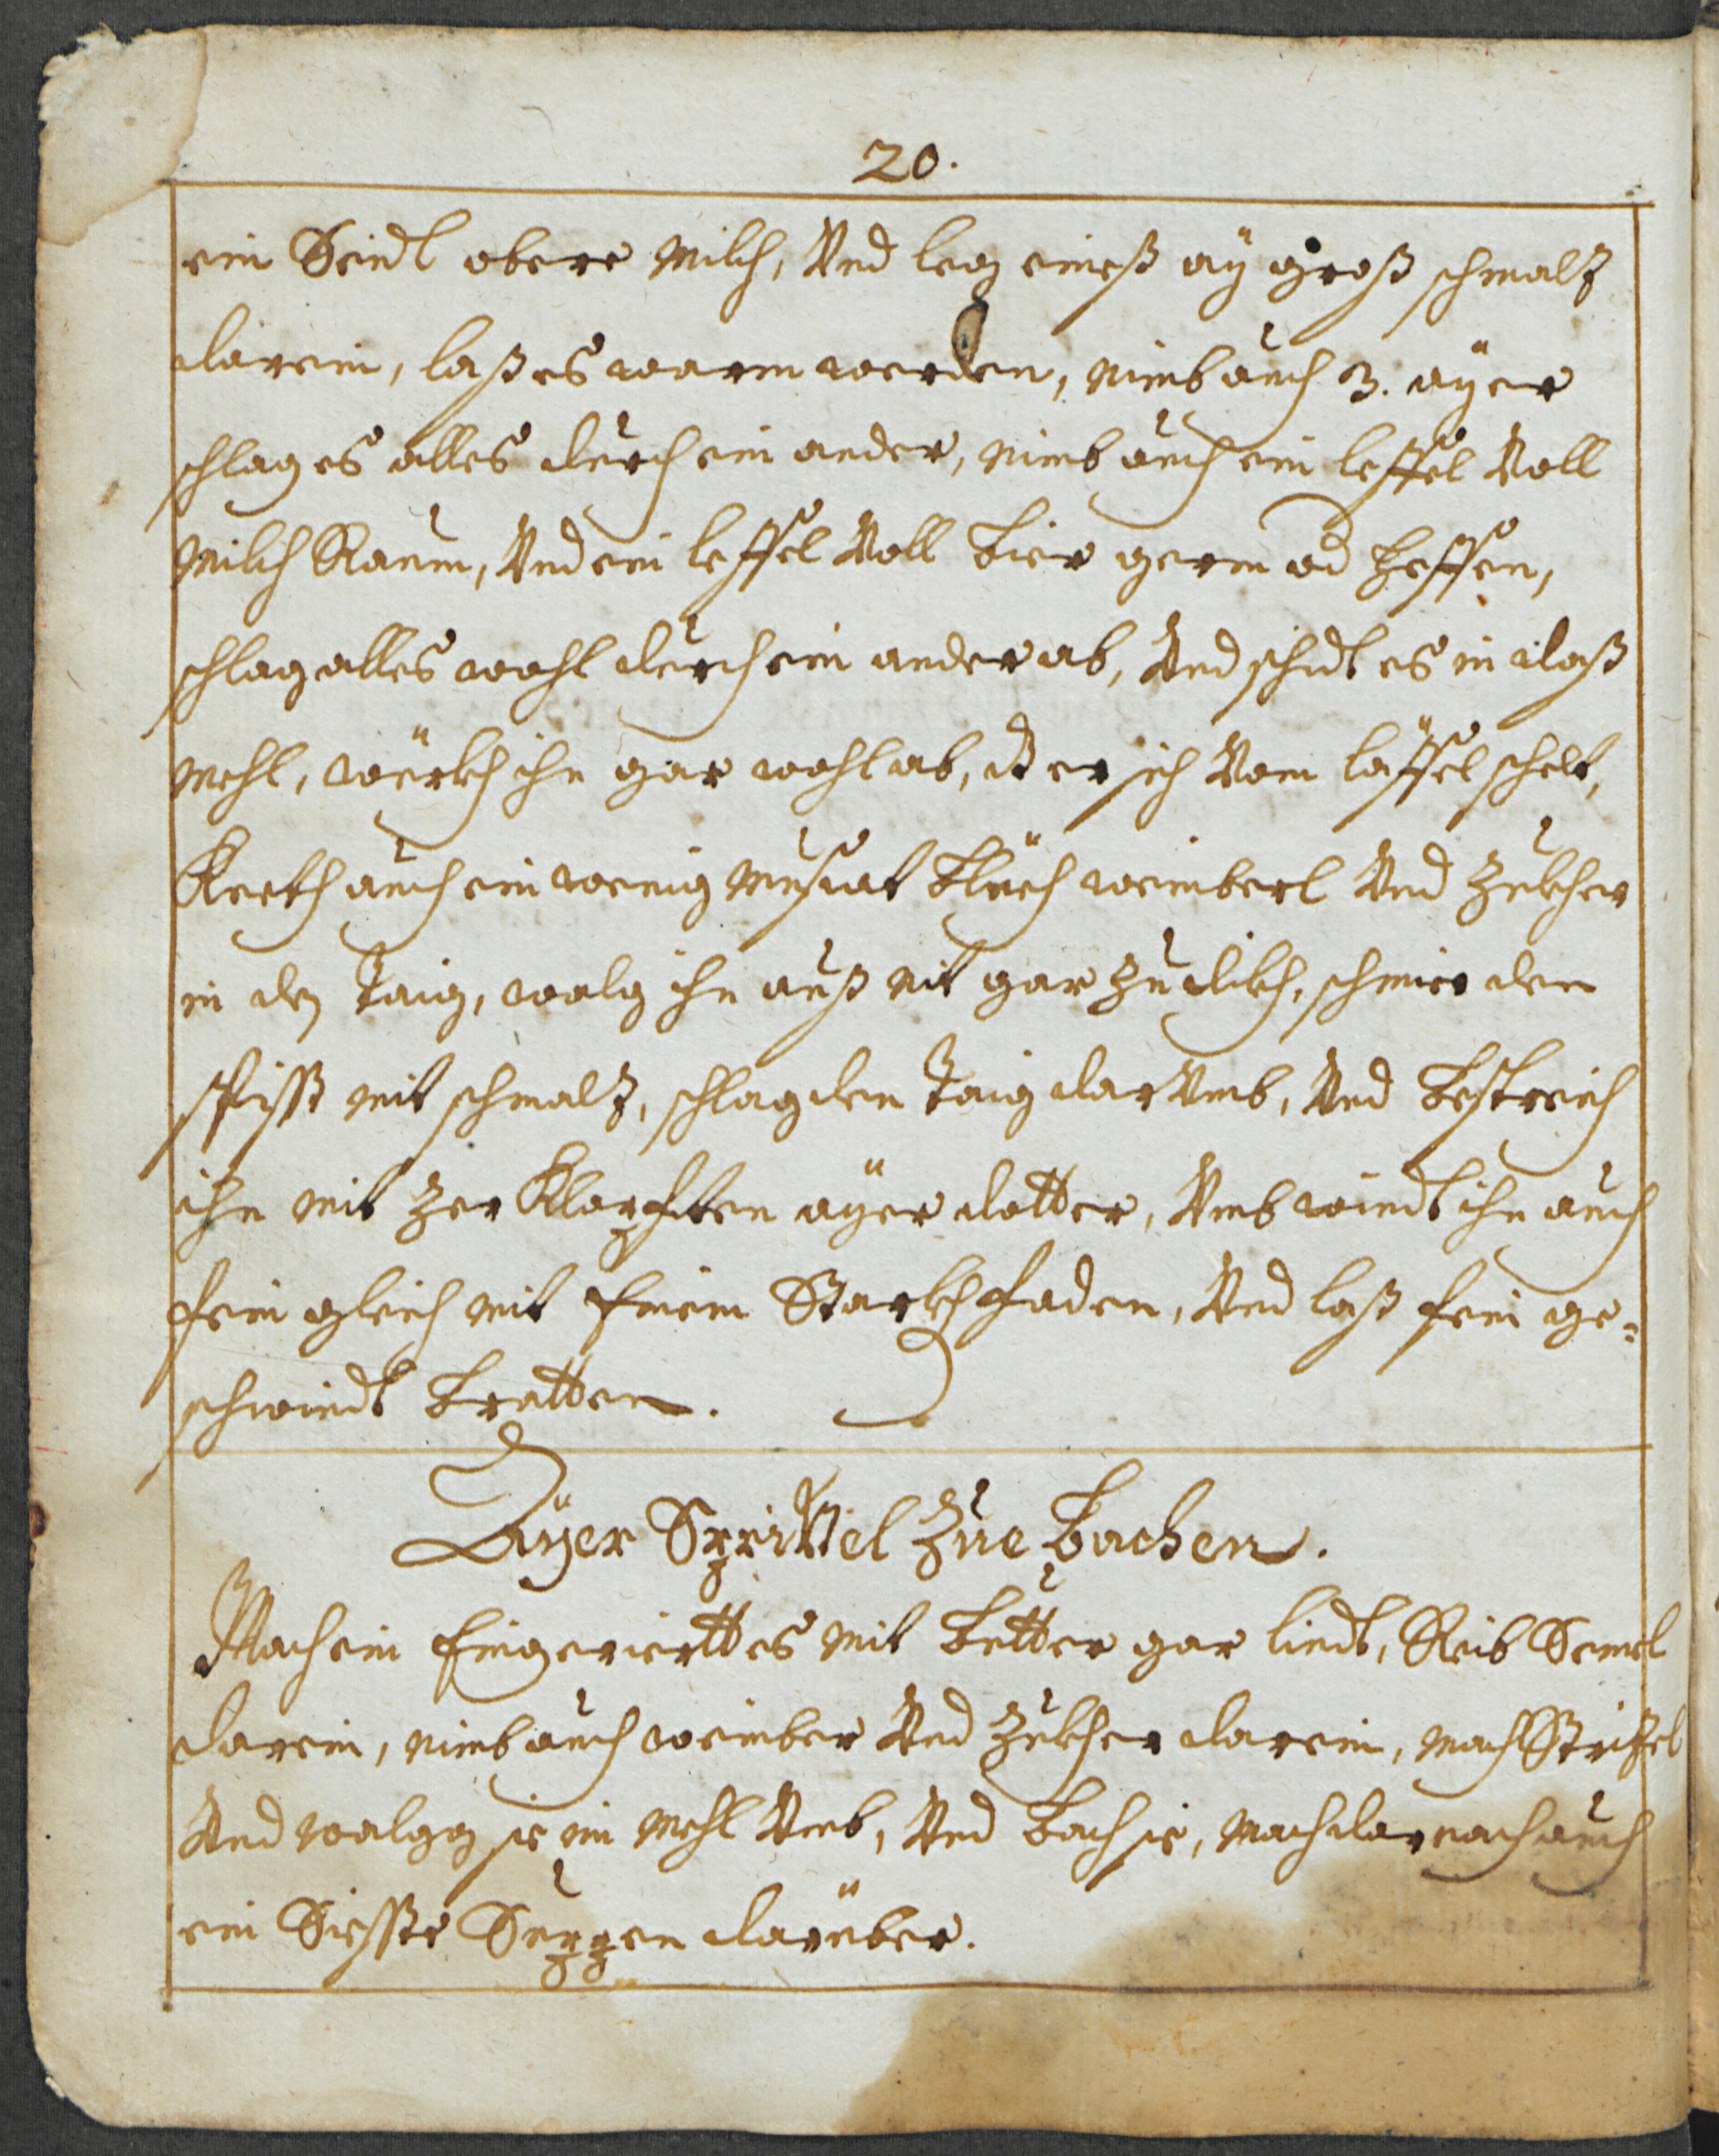 20.
ein Seidl obere Milch, Vnd leg eineß aÿ groß schmalz
darein, laß es warm werden, nimb auch 3. aÿer
schlag es alles durch ein ander, nimb auch ein leffel Voll
Milch Raum, Vnd ein leffel Voll Bier germ od heffen,
schlag alles wohl durch ein ander ab, Vnd schidt es in daß
Mehl, würkh ihn gar wohl ab, dz er sich Vom löffel schelt,
Kneth auch ein wenig Muscat Blueh weinberl Vnd Zukher
in den Taig, walg ihn auß nit gar zu dikh, schmier den
spiß mit schmalz, schlag den Taig dar Vmb, Vnd Bestreich
ihn mit zer Klopften aÿer dotter, Vmb windt ihn auch
fein gleich mit Einem Starkh faden, Vnd laß fein ge=
schwindt Bratten.
Aÿer Strizel Zue Bachen.
Mach ein Eingerierttes mit Butter gar lindt, Reib Semel
darein, nimb auch weinber Vnd Zukher darein, mach Strizel
Vnd walgg sie im Mehl Vmb, Vnd Bach sie, mach darnach auch
ein Siesse Suppen darüber.